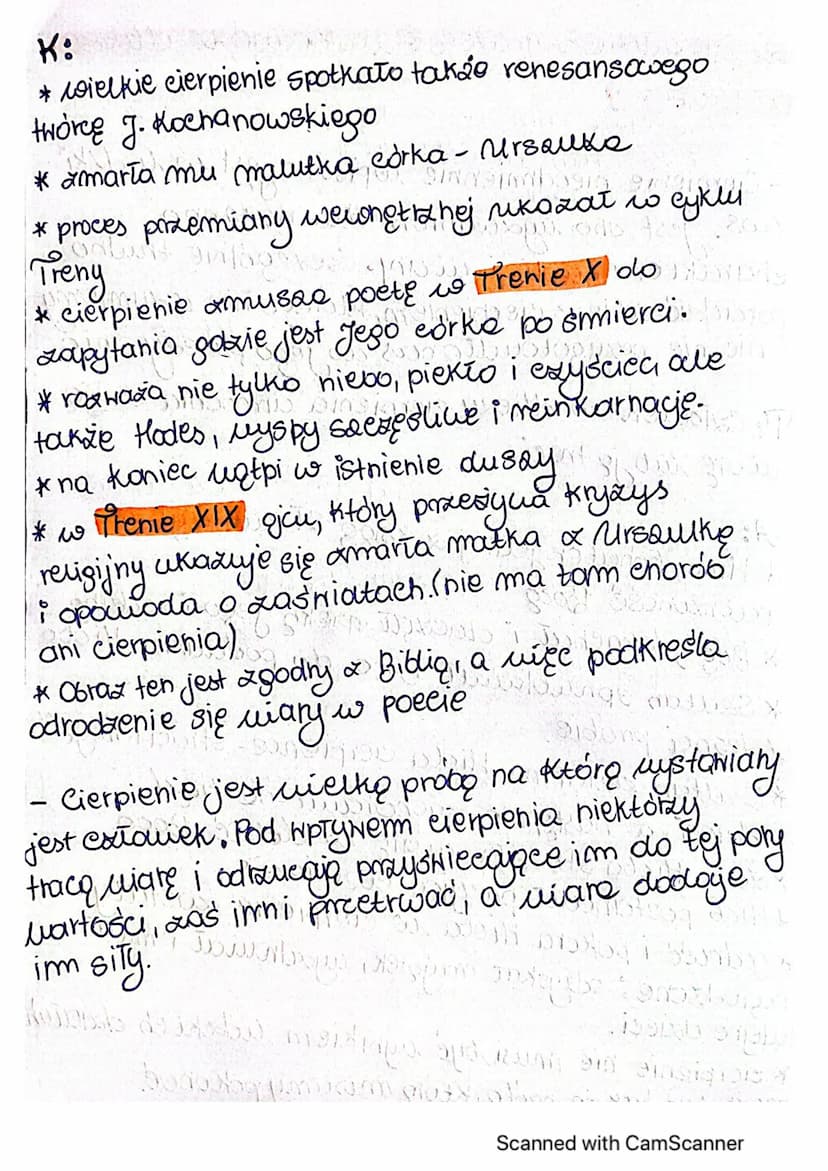 K:
* wielkie cierpienie spotkało także renesansowego
twórcę J. Kochanowskiego
* zmarła mu malutka córka - Urszulka
* proces przemiany wewnętrznej ukazał w cyklu
Treny
* cierpienie zmusza poetę w Trenie X do
zapytania gdzie jest Jego córka po śmierci.
* rozważa nie tylko niebo, piekło i czyścica ale
także Hades, wyspy szczęśliwe i reinkarnację.
* na koniec wątpi w istnienie duszy
* w Trenie XIX ojcu, który przeżywa kryzys
religijny ukazuje się zmarła matka z Urszulkę
i opowiada o zaświatach. (nie ma tam chorób
ani cierpienia)
* Obraz ten jest zgodny z Biblią, a więc podkreśla
odrodzenie się wiary w poecie
- Cierpienie jest wielką próbą na którą wystawiany
jest człowiek. Pod wpływem cierpienia niektórzy
tracą wiarę i odrzucają przyświecające im do tej pory
wartości, zaś inni przetrwać, a wiara dodaje
im siły.
Scanned with CamScanner